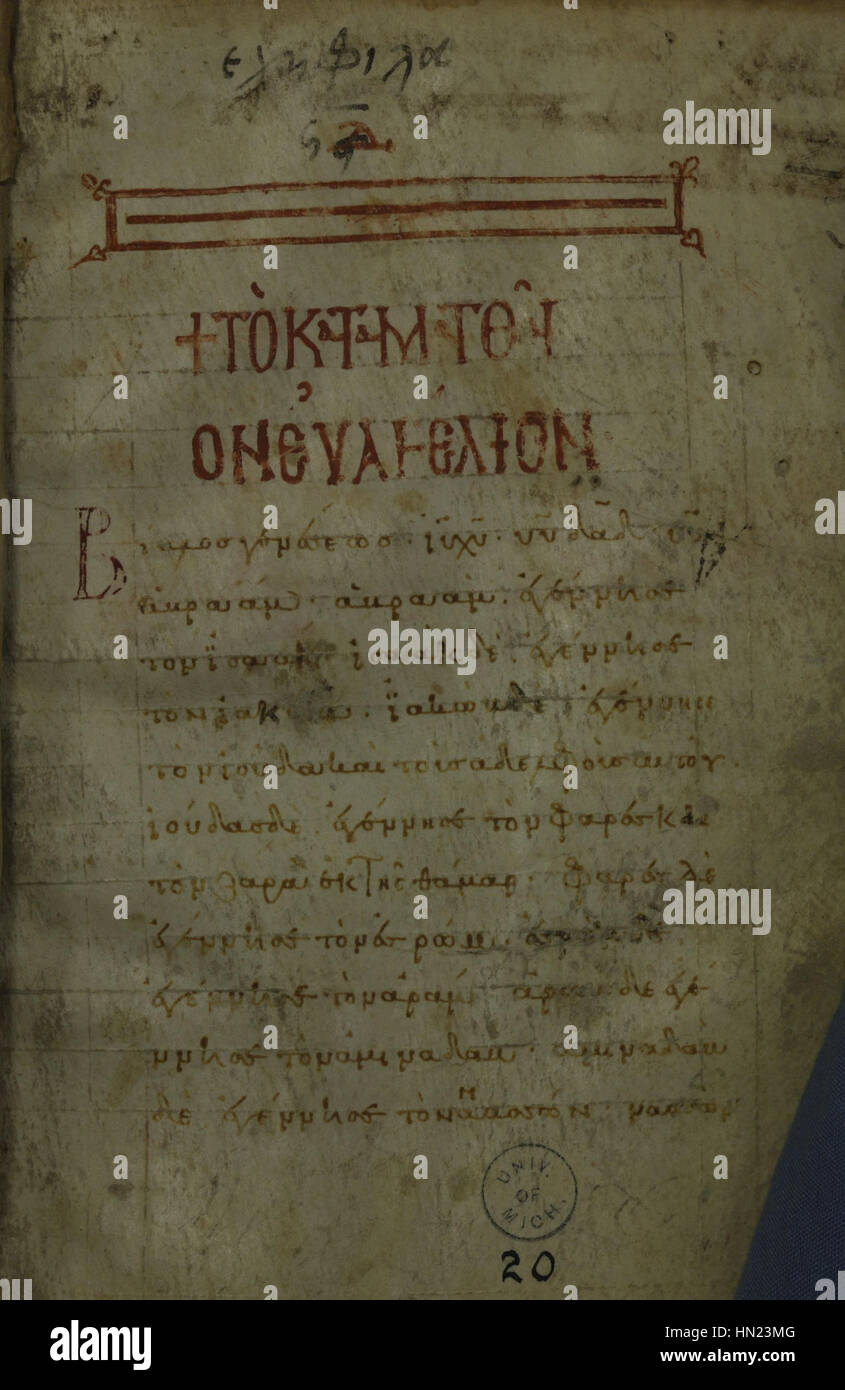 +ΤὸΚΑΤΑΜΑΤΘΑῖ
ΟΝΕὐΑΓΓέΛΙΟΝ
Βίβλος γενέσεως ἰῡ χῡ υῡ δᾱδ υῡ
ἀβραάμ · ἀβραὰμ ἐγέννησε
τον ἰσαάκ ἰσαὰκ δὲ ἐγέννησε
τὸν ἰακώβ · ἰακὼβ δὲ ἐγέννησε
τὸν ἰούδα και τοὶς ἀδελφοὶς αυτοῦ ·
ἰούδας δὲ ἐγέννησε τὸν φαρὲς και
τὸν ζαρὰ ἐκ τῆς θάμαρ · φαρὲς δὲ
ἐγέννησε τὸν ἐσρώμ · ἐσρὼμ δὲ
ἐγέννησε τὸν ἀράμ · ἀρὰμ δὲ ἐγέ
ννησε τὸν ἀμιναδάμ · ἀμιναδὰμ
δὲ ἐγέννησε τὸν ναασσών · ναασσὼν
UNIV. OF MICH.
20
alamy
Image ID: HN23MG
www.alamy.com